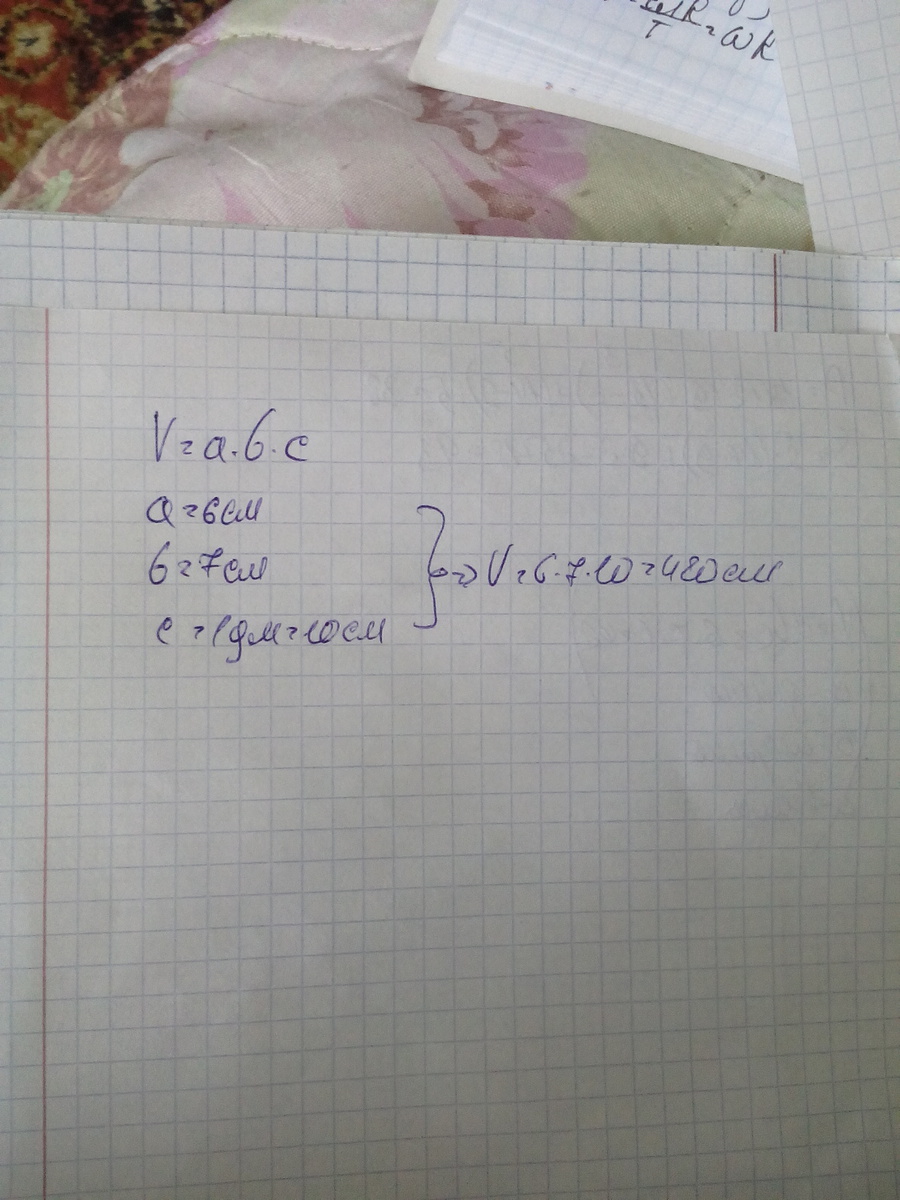 T = ωR
V = a · b · c
a = 6 см
b = 7 см
c = 1 дм = 10 см
} => V = 6 · 7 · 10 = 420 см